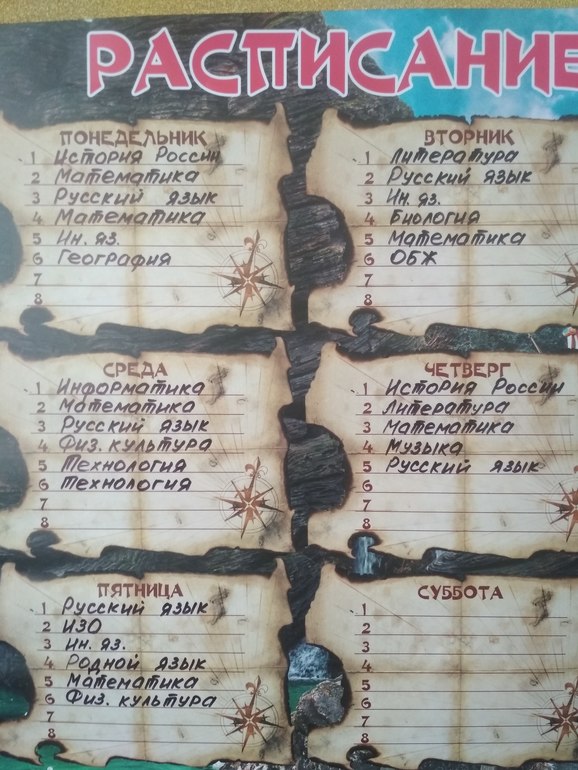 РАСПИСАНИЕ
ПОНЕДЕЛЬНИК
1 История России
2 Математика
3 Русский язык
4 Математика
5 Ин. яз.
6 География
7
8
ВТОРНИК
1 Литература
2 Русский язык
3 Ин. яз.
4 Биология
5 Математика
6 ОБЖ
7
8
СРЕДА
1 Информатика
2 Математика
3 Русский язык
4 Физ. культура
5 Технология
6 Технология
7
8
ЧЕТВЕРГ
1 История России
2 Литература
3 Математика
4 Музыка
5 Русский язык
6
7
8
ПЯТНИЦА
1 Русский язык
2 ИЗО
3 Ин. яз.
4 Родной язык
5 Математика
6 Физ. культура
7
8
СУББОТА
1
2
3
4
5
6
7
8